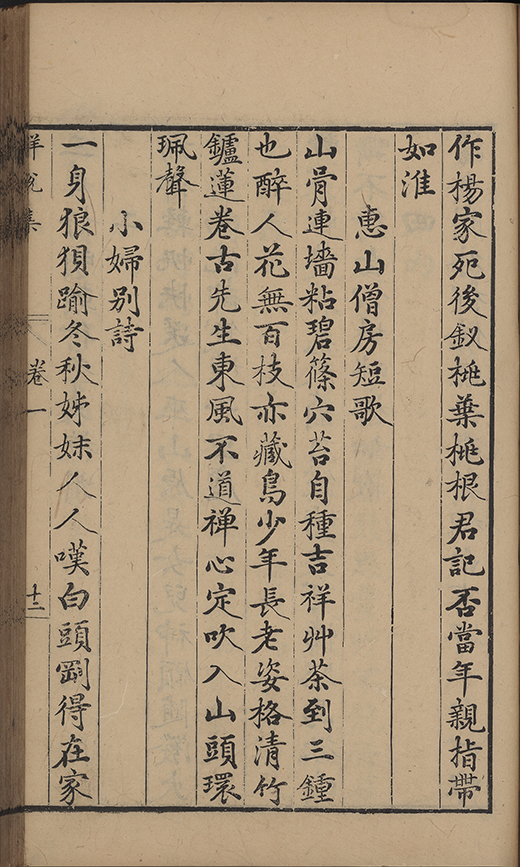 作楊家死後釵桃葉桃根君記否當年親指帶
如淮
惠山僧房短歌
山骨連墻粘碧篠穴苔自種吉祥艸茶到三鍾
也醉人花無百枝亦藏鳥少年長老姿格清竹
鑪蓮卷古先生東風不道禅心定吹入山頭環
珮聲
小婦別詩
一身狼狽踰冬秋姊妹人人嘆白頭剛得在家
卷一
十二